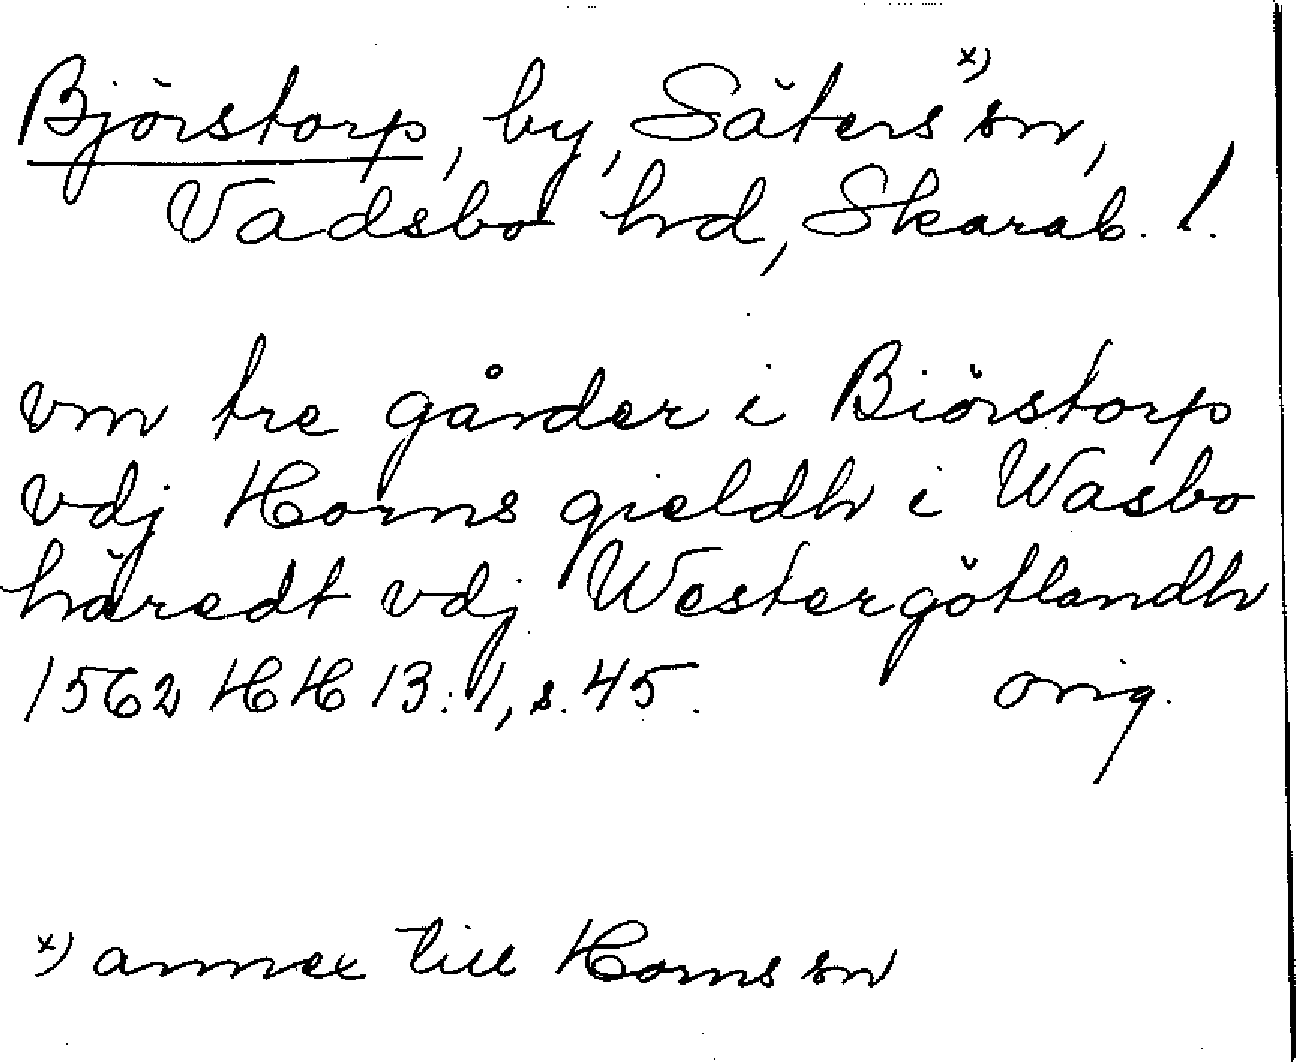 Björstorp, by, Säters x) sn,
Vadsbo hd, Skarab. l.
vm tre gårder i Biörstorp
vdj Horns gieldh i Wasbo
häredt vdj Westergötlandh
1562 HH 13:1, s. 45. orig.
x) annex till Horns sn